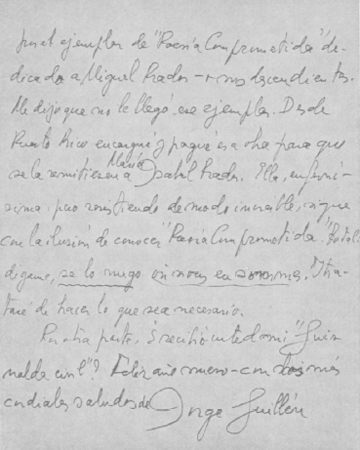 por el ejemplar de "Poesía Comprometida" de-
dicado a Miguel Prados - o sus descendientes.
Me dijo que no le llegó ese ejemplar. Desde
Puerto Rico encargué y pagué esa obra para que
se la remitiesen a María Isabel Prados. Ella, enfermí-
sima, pero resistiendo de modo increíble, sigue
con la ilusión de conocer "Poesía Comprometida."
dígame, se lo ruego
taré de hacer lo que sea necesario.
Por otra parte. ¿recibió usted mi "Guir
nalda civil"? Feliz año nuevo - con los más
cordiales saludos de
Jorge Guillén